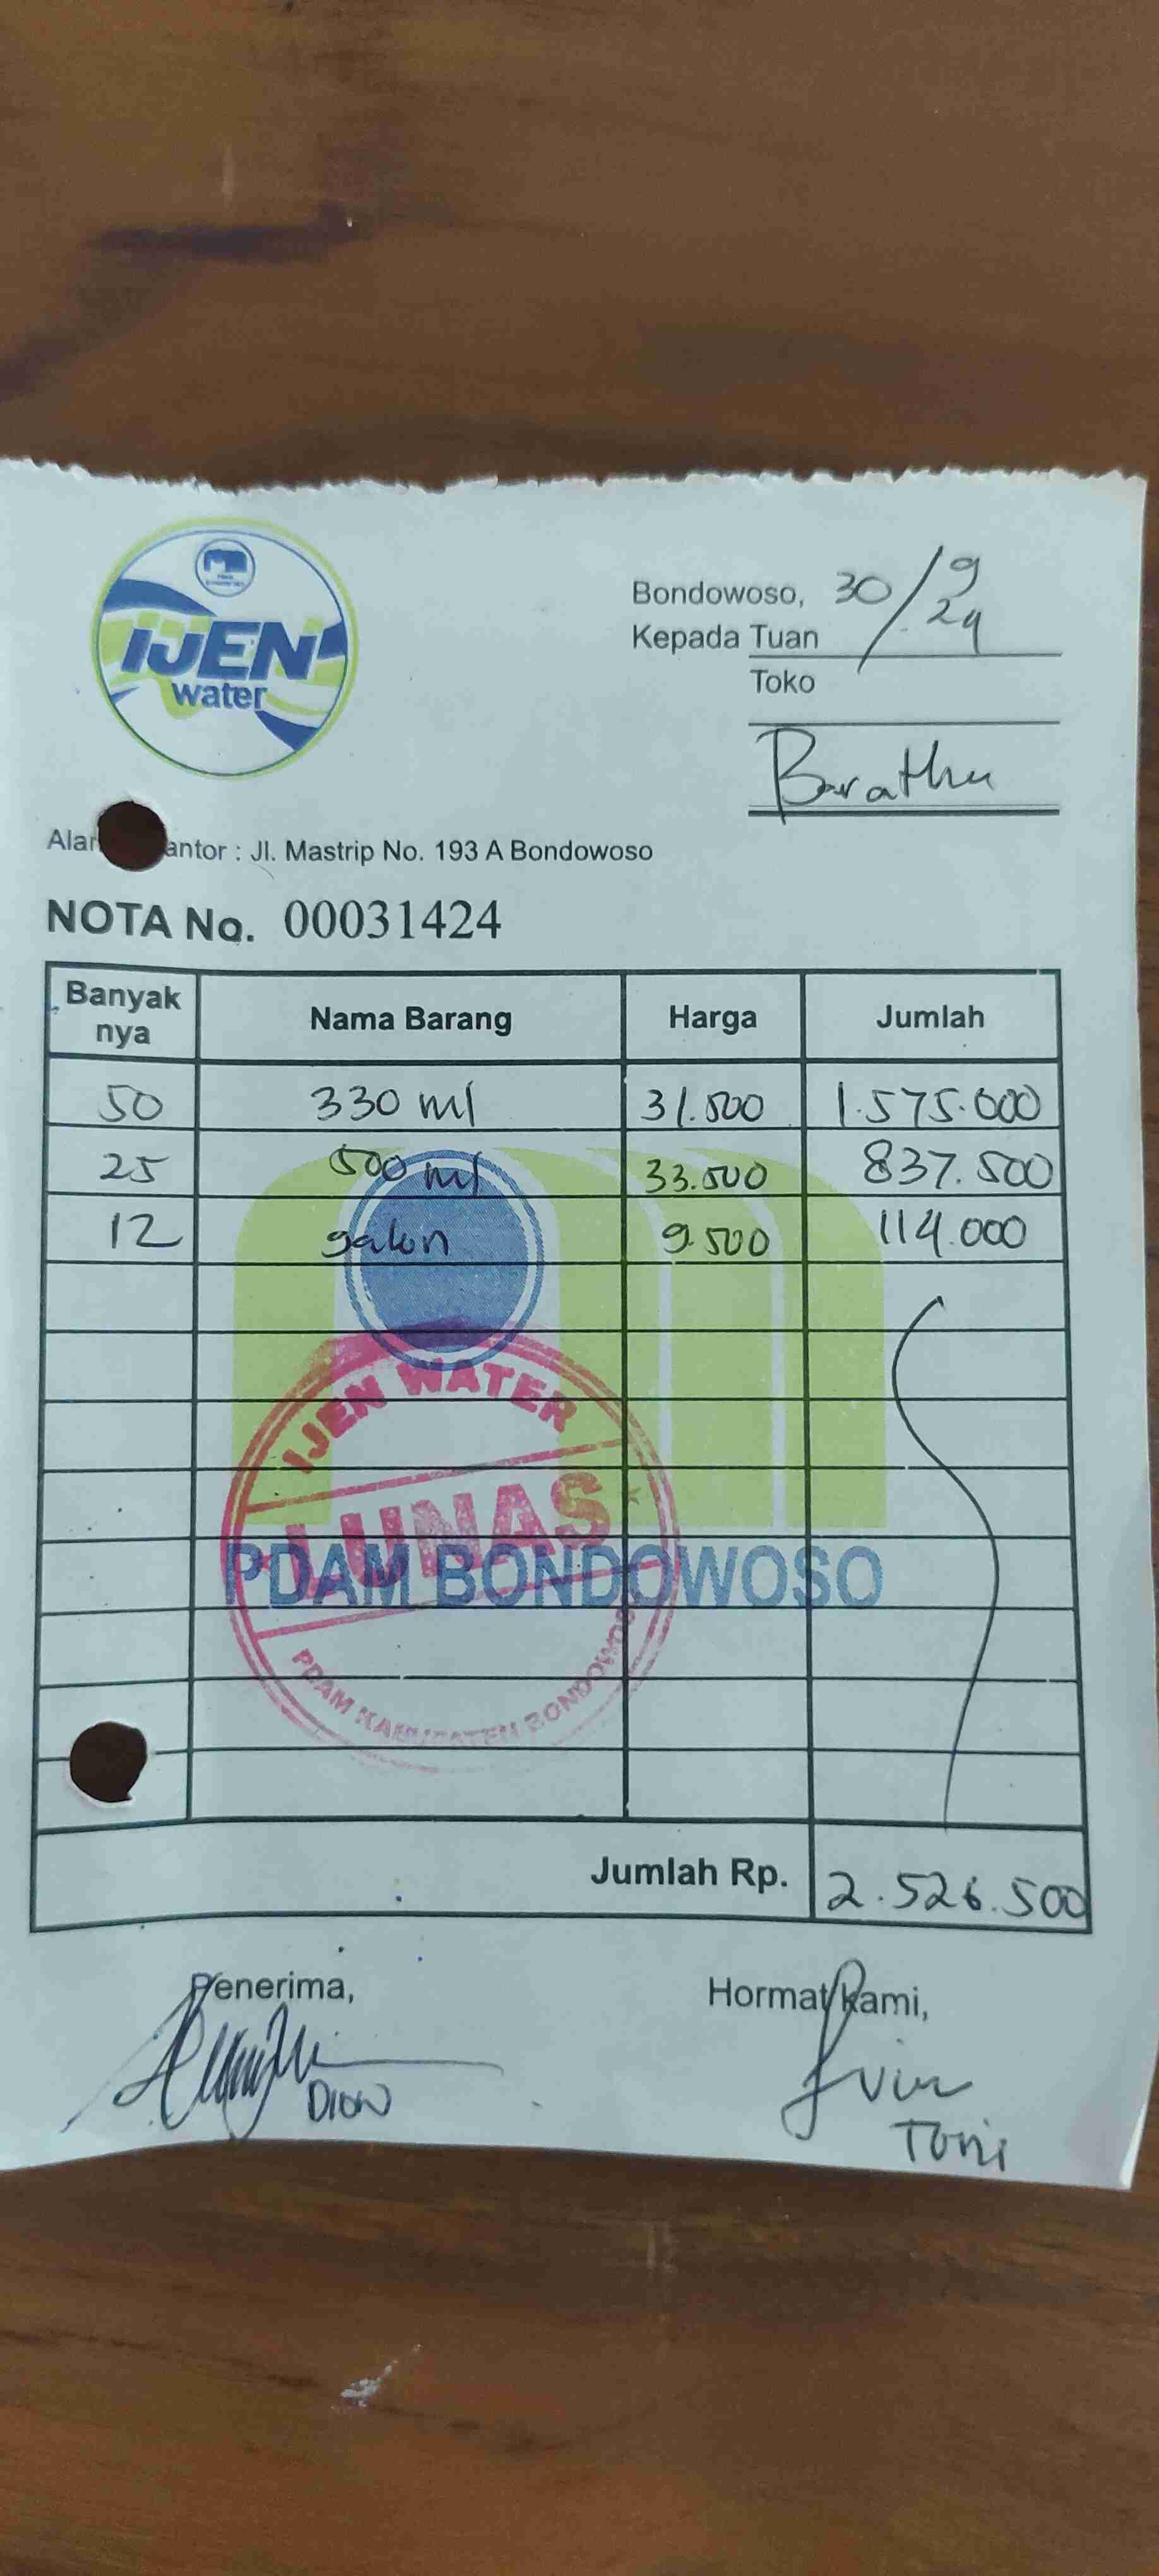 IJEN
water
Bondowoso, 30/9 24
Kepada Tuan
Toko
Barathu
Alar antor : Jl. Mastrip No. 193 A Bondowoso
NOTA No. 00031424
Banyak nya Nama Barang Harga Jumlah
50 330 ml 31.500 1.575.000
25 500 ml 33.500 837.500
12 galon 9.500 114.000
IJEN WATER
LUNAS
PDAM BONDOWOSO
PDAM KABUPATEN BONDOWOSO
Jumlah Rp. 2.526.500
Penerima, Hormat Kami,
DION
Toni